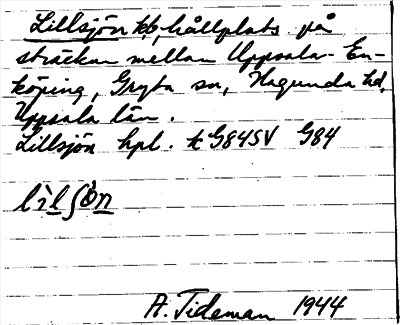 Lillsjön hållplats på
sträckan mellan Uppsala-En-
köping, Gryta sn, Hagunda hd,
Uppsala län.
Lillsjön hpl. k G84SV G84
A. Tideman 1944